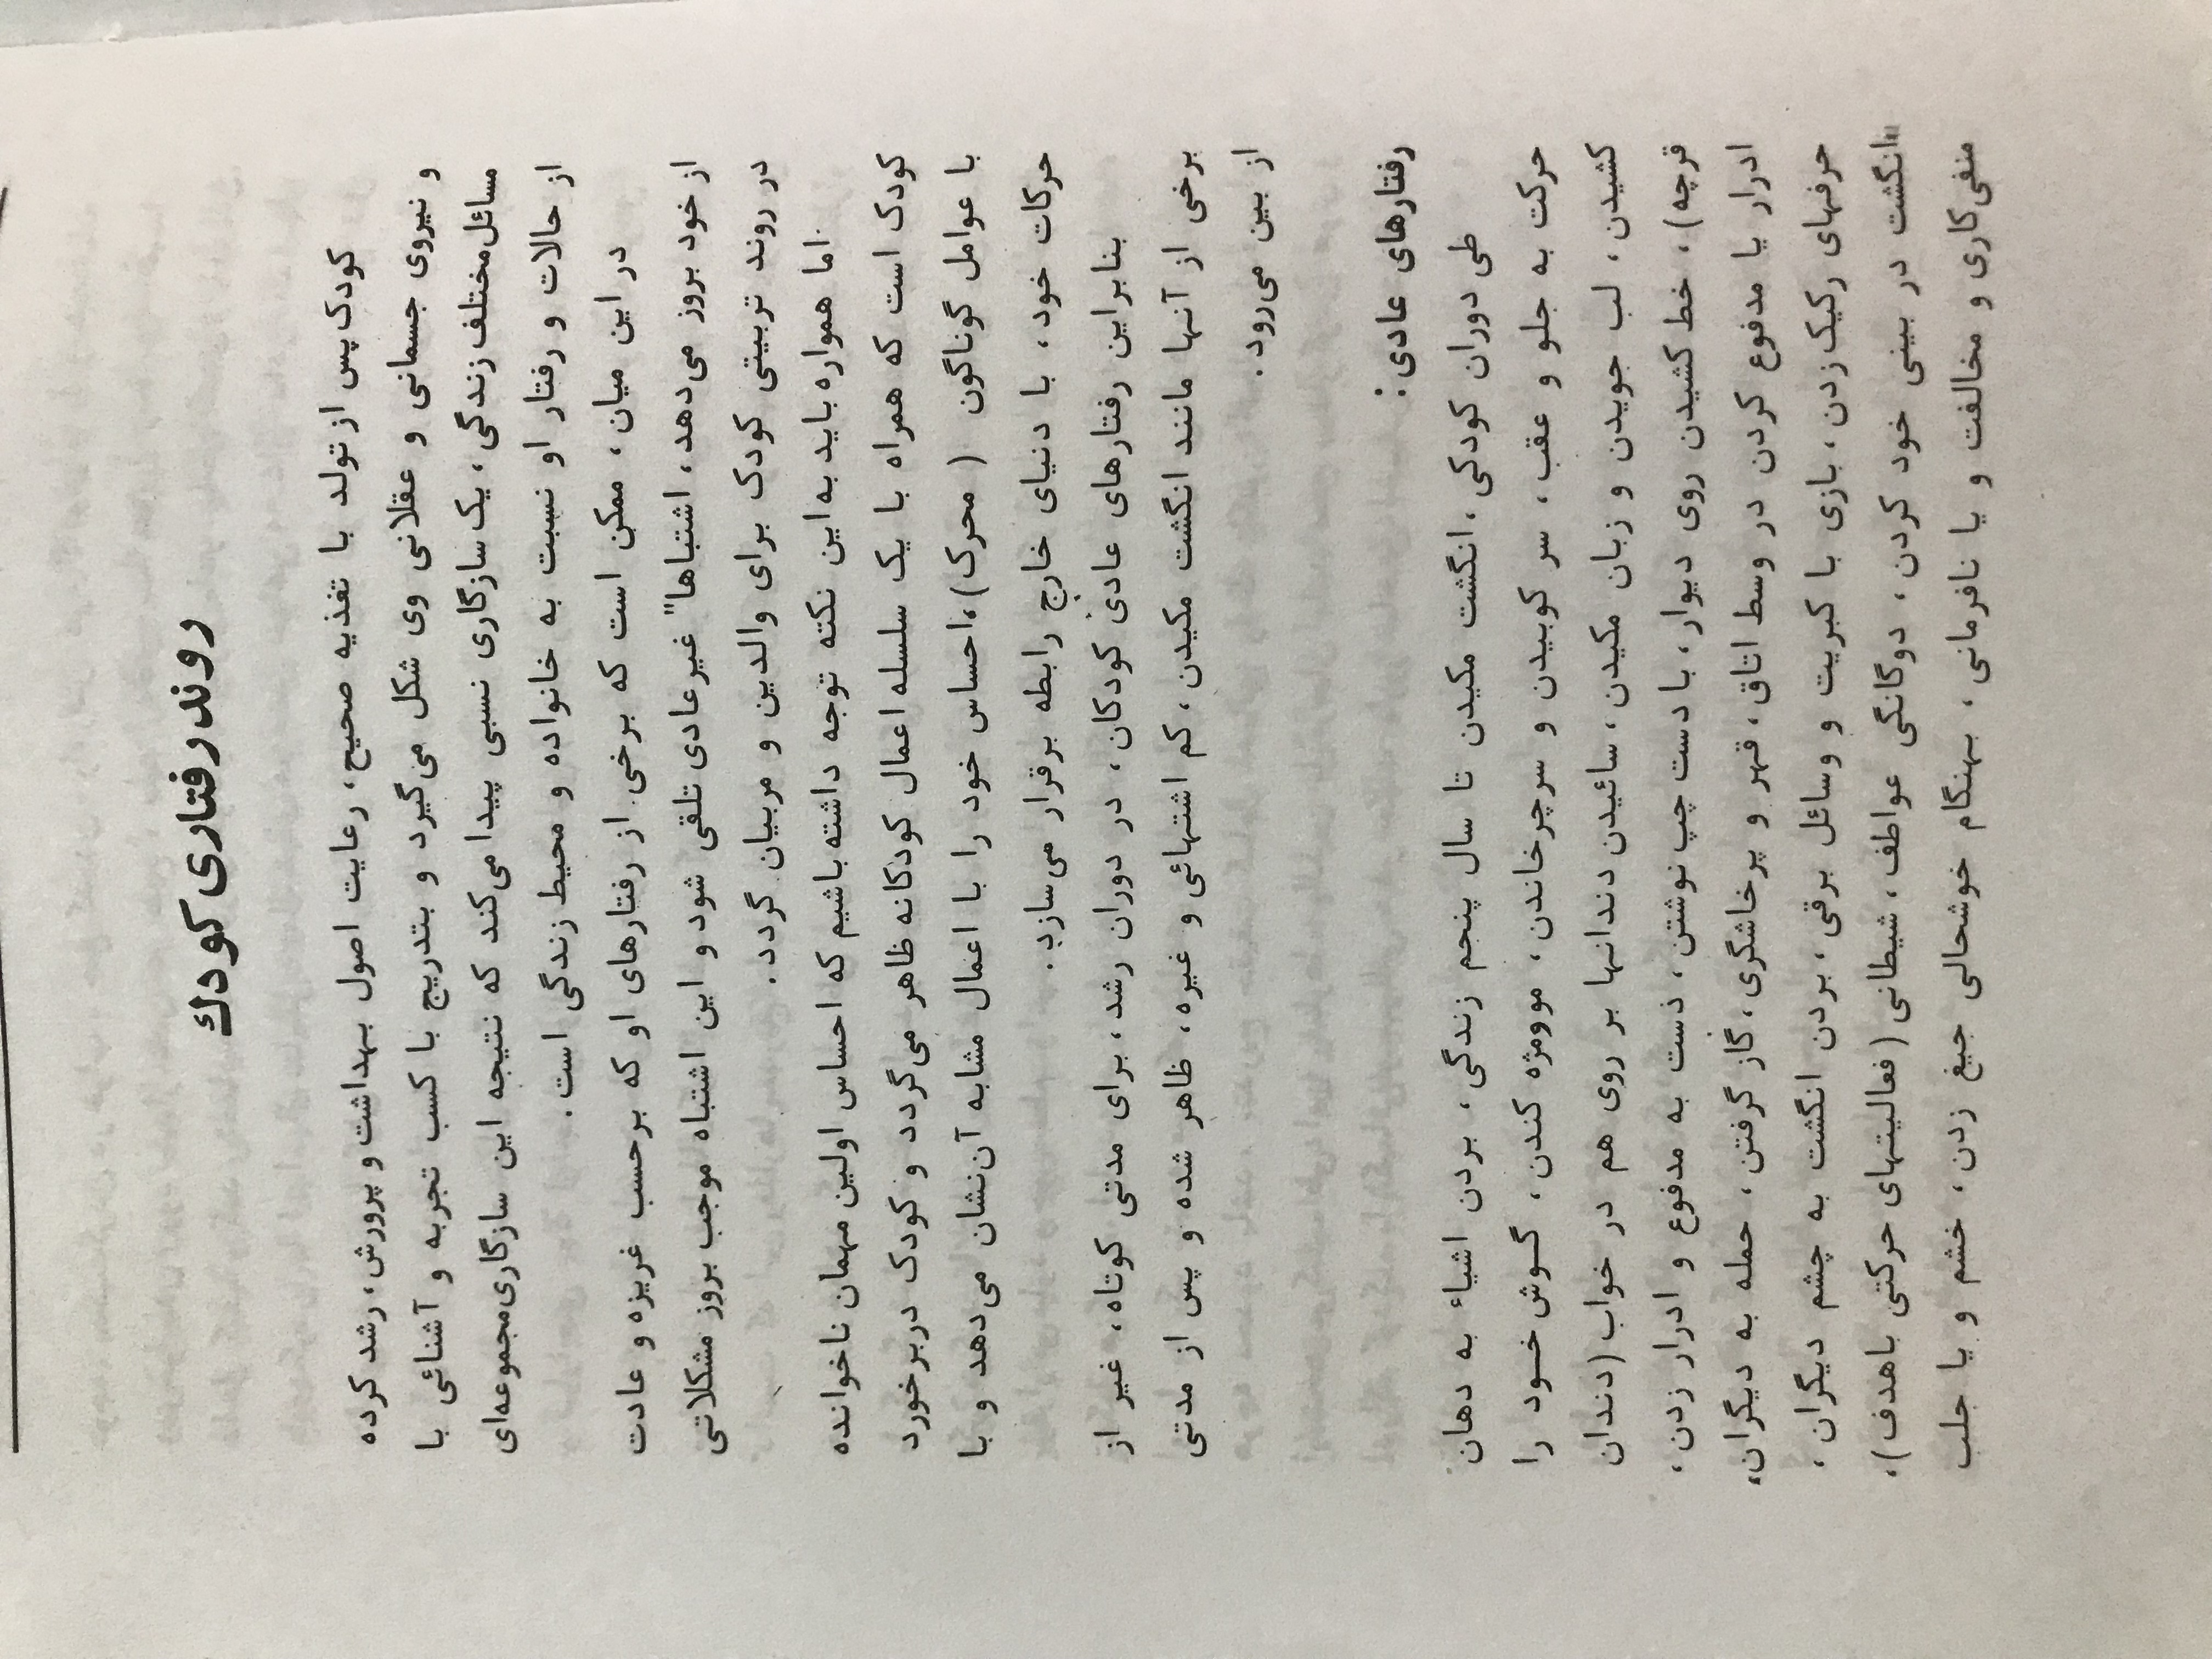 روند رفتاری کودك
کودک پس از تولد با تغذیه صحیح، رعایت اصول بهداشت و پرورش، رشد کرده
و نیروی جسمانی و عقلانی وی شکل می‌گیرد و بتدریج با کسب تجربه و آشنائی با
مسائل مختلف زندگی، یک سازگاری نسبی پیدا می‌کند که نتیجه این سازگاری مجموعه‌ای
از حالات و رفتار او نسبت به خانواده و محیط زندگی است.
در این میان، ممکن است که برخی از رفتارهای او که برحسب غریزه و عادت
از خود بروز می‌دهد، اشتباها" غیرعادی تلقی شود و این اشتباه موجب بروز مشکلاتی
در روند تربیتی کودک برای والدین و مربیان گردد.
اما همواره باید به این نکته توجه داشته باشیم که احساس اولین مهمان ناخوانده
کودک است که همراه با یک سلسله اعمال کودکانه ظاهر می‌گردد و کودک در برخورد
با عوامل گوناگون ( محرک)، احساس خود را با اعمال مشابه آن نشان می‌دهد و با
حرکات خود، با دنیای خارج رابطه برقرار می‌سازد.
بنابراین رفتارهای عادی کودکان، در دوران رشد، برای مدتی کوتاه، غیر از
برخی از آنها مانند انگشت مکیدن، کم اشتهائی و غیره، ظاهر شده و پس از مدتی
از بین می‌رود.
رفتارهای عادی:
طی دوران کودکی، انگشت مکیدن تا سال پنجم زندگی، بردن اشیاء به دهان
حرکت به جلو و عقب، سر کوبیدن و سرچرخاندن، موومژه کندن، گوش خود را
کشیدن، لب جویدن و زبان مکیدن، سائیدن دندانها بر روی هم در خواب (دندان
قرچه)، خط کشیدن روی دیوار، با دست چپ نوشتن، دست به مدفوع و ادرار زدن،
ادرار یا مدفوع کردن در وسط اتاق، قهر و پرخاشگری، گاز گرفتن، حمله به دیگران،
حرفهای رکیک زدن، بازی با کبریت و وسائل برقی، بردن انگشت به چشم دیگران،
انگشت در بینی خود کردن، دوگانگی عواطف، شیطانی (فعالیتهای حرکتی باهدف)،
منفی‌کاری و مخالفت و یا نافرمانی، بهنگام خوشحالی جیغ زدن، خشم و یا جلب